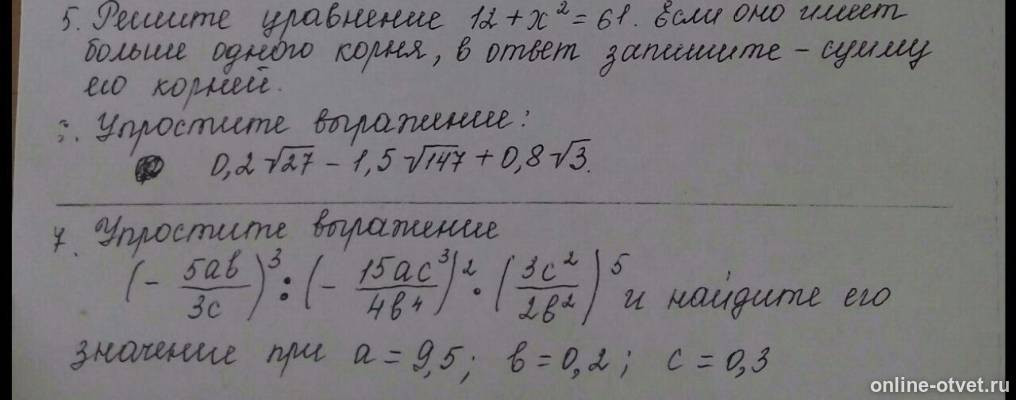 5. Решите уравнение 12 + x² = 61. Если оно имеет
больше одного корня, в ответ запишите – сумму
его корней.
Упростите выражение:
0,2√27 – 1,5√147 + 0,8√3.
7. Упростите выражение
(– 5ab/3c)³ : (– 15ac³/4b⁴)² · (3c²/2b²)⁵ и найдите его
значение при a = 9,5; b = 0,2; c = 0,3
online-otvet.ru